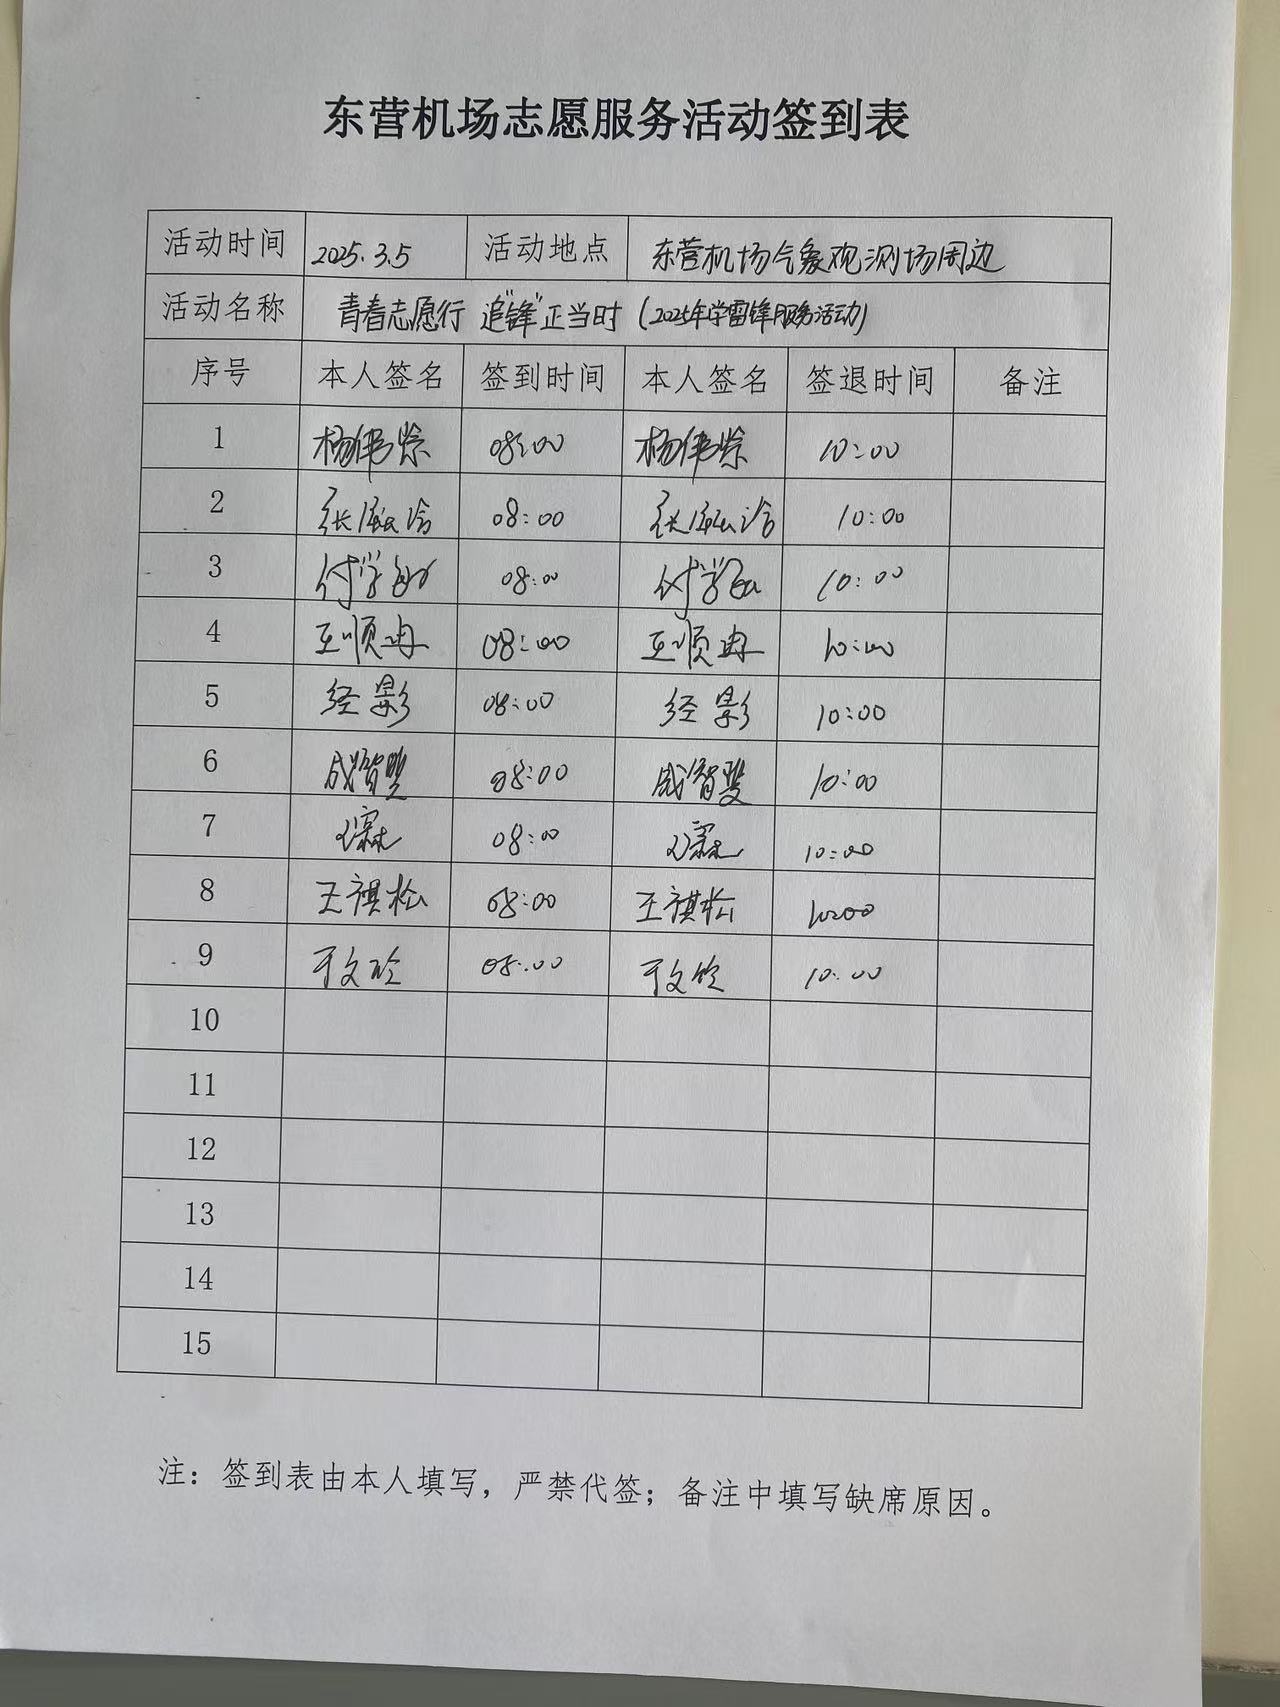 东营机场志愿服务活动签到表
活动时间 2025.3.5 活动地点 东营机场气象观测场周边
活动名称 青春志愿行 追"锋"正当时（2025年学雷锋服务活动）
序号 本人签名 签到时间 本人签名 签退时间 备注
1 08:00 10:00
2 08:00 10:00
3 08:00 10:00
4 王顺冉 08:00 王顺冉 10:00
5 经影 08:00 经影 10:00
6 08:00 10:00
7 08:00 10:00
8 王祺松 08:00 王祺松 10:00
9 08:00 10:00
10
11
12
13
14
15
注：签到表由本人填写，严禁代签；备注中填写缺席原因。